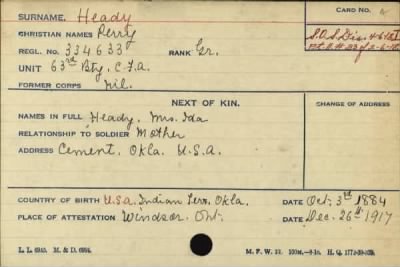 SURNAME. Heady
CARD NO. 4
CHRISTIAN NAMES Perry
REGL. NO. 334633 RANK Gr.
S.O.S. Dis.
UNIT 63rd Bty, C.F.A.
FORMER CORPS nil.
NEXT OF KIN. CHANGE OF ADDRESS
NAMES IN FULL Heady, Mrs. Ida
RELATIONSHIP TO SOLDIER Mother
ADDRESS Cement, Okla. U.S.A.
COUNTRY OF BIRTH U.S.A. Indian Terr. Okla. DATE Oct. 3rd 1884
PLACE OF ATTESTATION Windsor, Ont. DATE Dec. 26th 1917
L. L. 6945. M. & D. 6984. M. F. W. 22.